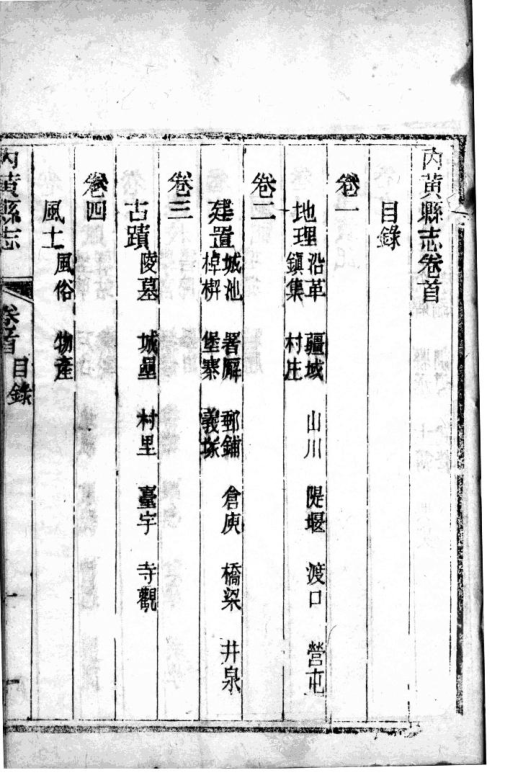 內黃縣志卷首
目錄
卷一
地理 沿革 疆域 山川 隄堰 渡口 營屯
鎮集 村庄
卷二
建置 城池 署廨 郵鋪 倉庾 橋梁 井泉
棹楔 堡寨 義塚
卷三
古蹟 陵墓 城壘 村里 臺宇 寺觀
卷四
風土 風俗 物產
內黃縣志 卷首 目錄 一